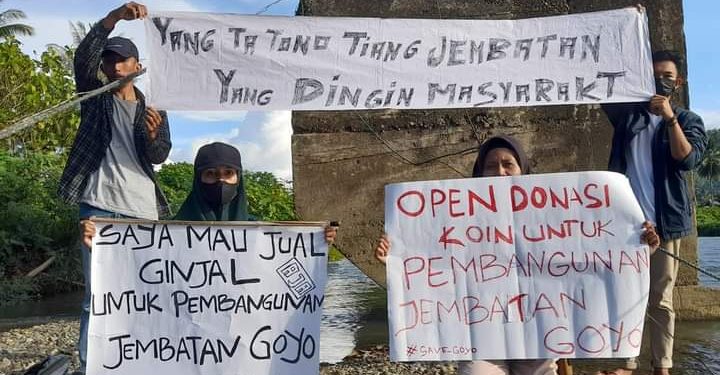 YANG TATONO TIANG JEMBATAN
YANG DINGIN MASYARAKT
SAJA MAU JUAL
GINJAL
AJA
UNTUK PEMBANGUNAN
JEMBATAN GOYO
OPEN DONASI
KOIN UNTUK
PEMBANGUNAN
JEMBATAN
GOYO
#SAVE_GOYO